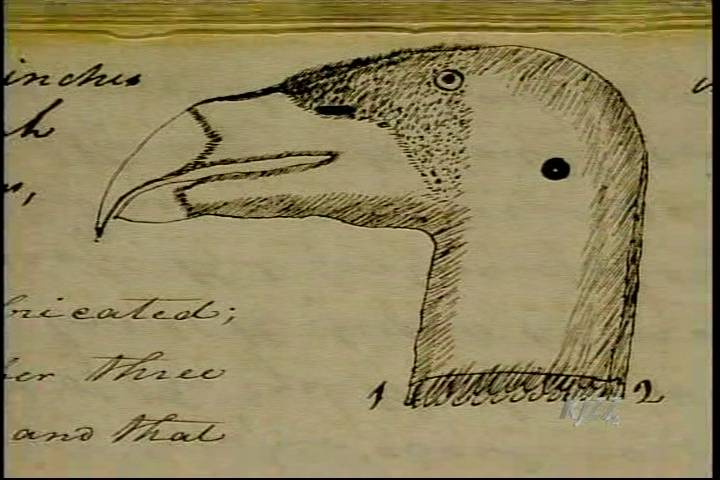 inches
h
bricated;
ter three
and that
1
2